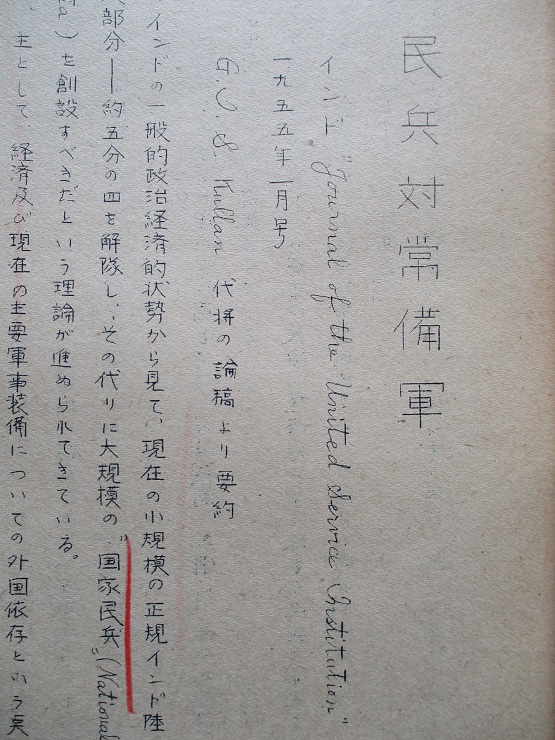 民兵対常備軍
インド "Journal of the United Service Institution"
一九五五年一月号
代将の論稿より要約
インドの一般的政治経済的状勢から見て、現在の小規模の正規インド陸
部分―約五分の四を解隊し、その代りに大規模の"国家民兵"(National
)を創設すべきだという理論が進められてきている。
主として、経済及び現在の主要軍事装備についての外国依存という点